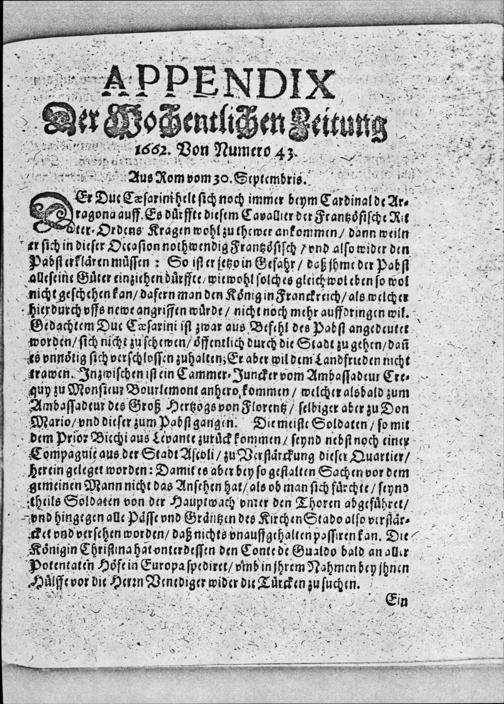 APPENDIX
Der Wochentlichen Zeitung
1662. Von Numero 43.
Aus Rom vom 30. Septembris.
DEr Duc Cæsarini helt sich noch immer beym Cardinal de Ar-
ragona auff. Es dürffte diesem Cavallier der Frantzösische Rit
ter-Ordens Kragen wohl zu thewer ankommen / dann weiln
er sich in dieser Occasion nothwendig Frantzösisch / vnd also wider den
Pabst erklären müssen : So ist er jetzo in Gefahr / daß jhme der Pabst
alle seine Güter einziehen dürffte / wiewohl solches gleichwol eben so wol
nicht geschehen kan / dafern man den König in Franckreich / als welcher
hierdurch vffs newe angriffen würde / nicht noch mehr auffbringen wil.
Gedachtem Duc Cæsarini ist zwar aus Befehl des Pabst angedeutet
worden / sich nicht zu schewen / öffentlich durch die Stadt zu gehen / dañ
es vnnötig sich verschlossen zuhalten; Er aber wil dem Landfrieden nicht
trawen. Inzwischen ist ein Cammer-Juncker vom Ambassadeur Cre-
quy zu Monsieur Bourlemont anhero kommen / welcher alsbald zum
Ambassadeur des Groß Hertzogs von Florentz / selbiger aber zu Don
Mario / vnd dieser zum Pabst gangen. Die meiste Soldaten / so mit
dem Prior Bichi aus Levante zurück kommen / seynd nebst noch einer
Compagnie aus der Stadt Ascoli / zu Verstärckung dieser Quartier /
herein geleget worden: Damit es aber bey so gestalten Sachen vor dem
gemeinen Mann nicht das Ansehen hat / als ob man sich fürchte / seynd
theils Soldaten von der Hauptwach vnter den Thoren abgeführet /
vnd hingegen alle Pässe vnd Gräntzen des Kirchen Stado also verstär-
cket vnd versehen worden / daß nichts vnauffgehalten passiren kan. Die
Königin Christina hat vnterdessen den Conte de Gualdo bald an aller
Potentaten Höfe in Europa spediret / vmb in jhrem Nahmen bey jhnen
Hülffe vor die Herrn Venediger wider die Türcken zu suchen.
Ein